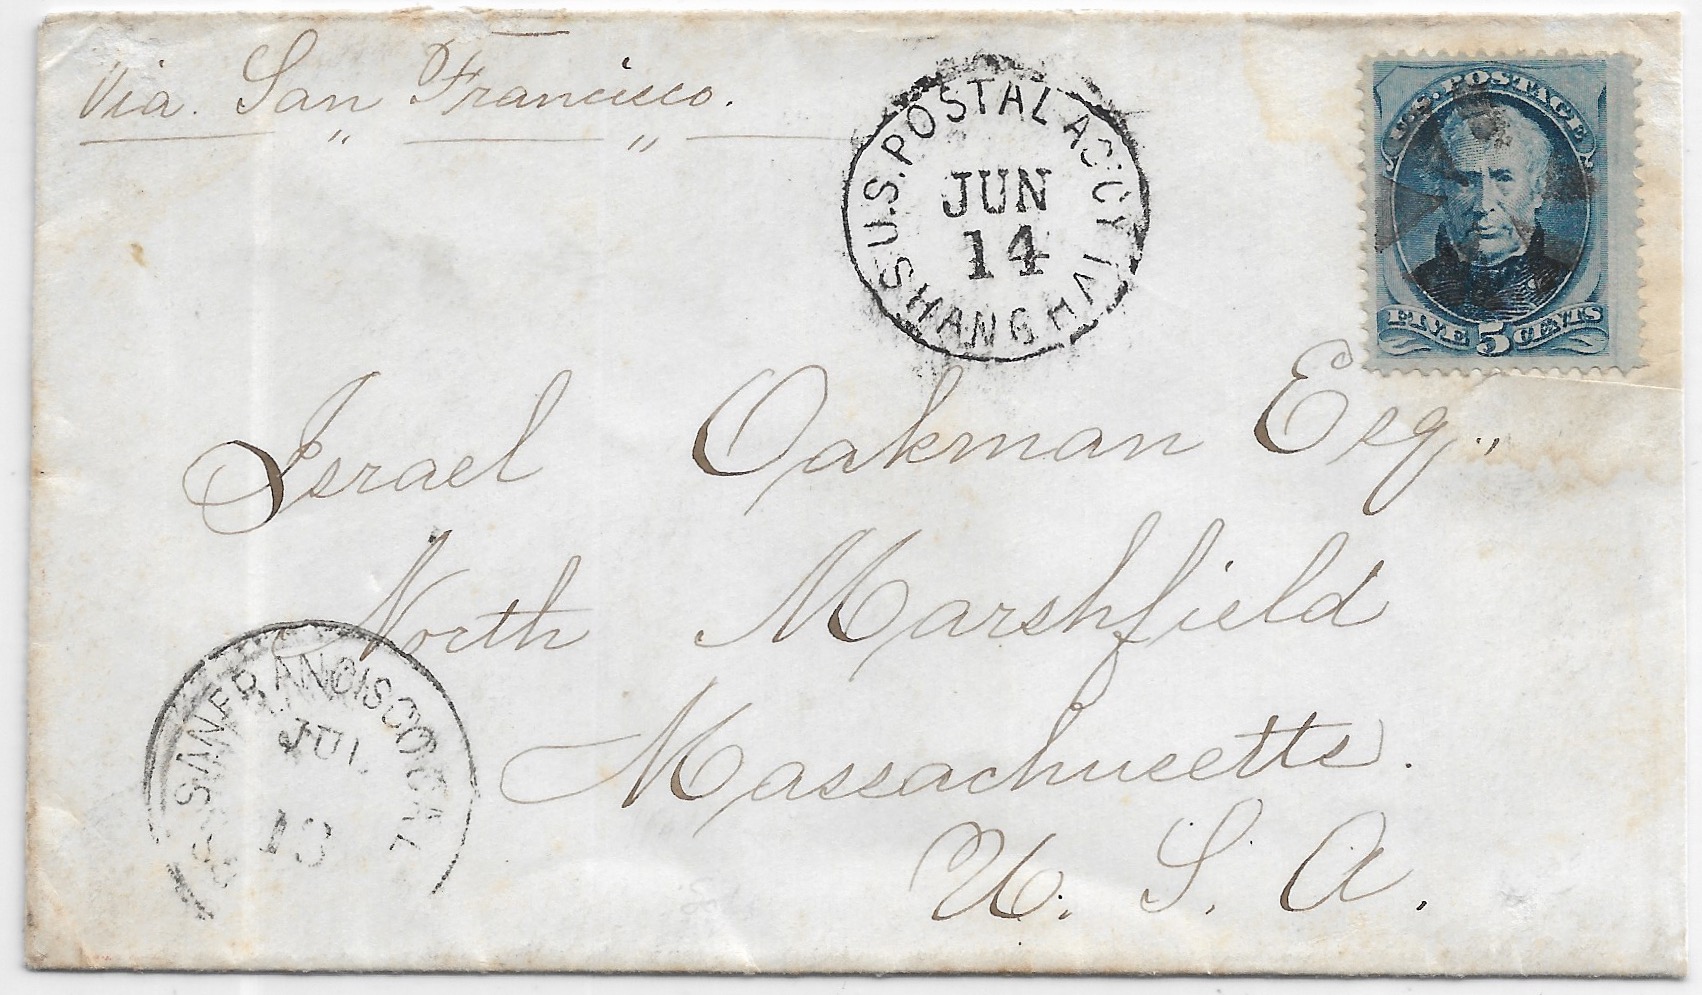 Via. San Francisco.
U.S. POSTAL AGCY
JUN
14
SHANGHAI
U.S. POSTAGE
FIVE 5 CENTS
Israel Oakman Esq.,
North Marshfield
Massachusetts.
U. S. A.
SAN FRANCISCO CAL
JUL
13